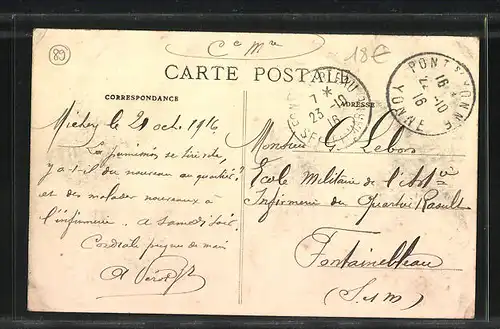 89
Cce Mre
18€
CARTE POSTALE
CORRESPONDANCE
ADRESSE
PONT S YONNE
YONNE
22-10
16
7 *
23-10
16
Michery le 21 octo. 1916
La permission se tire vite,
y a-t-il du nouveau au quartier?
et des malades nouveaux à
l'infirmerie. à samedi soir
Cordiale poignée de main
Monsieur G. Lebon
Ecole Militaire de l'Artie
Infirmerie du Quartier Raoult
Fontainebleau
(S. et M)